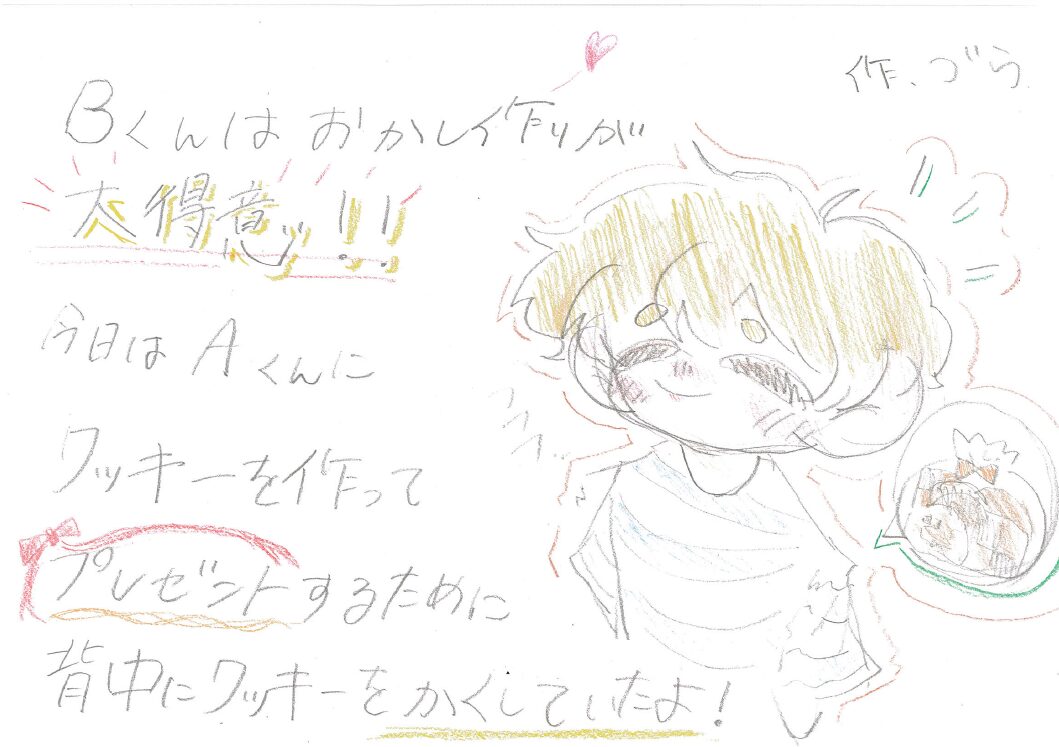 作、づら
Bくんは おかし作りが
大得意ッ!!
今日は Aくんに
クッキーを作って
プレゼントするために
背中にクッキーをかくしていたよ!